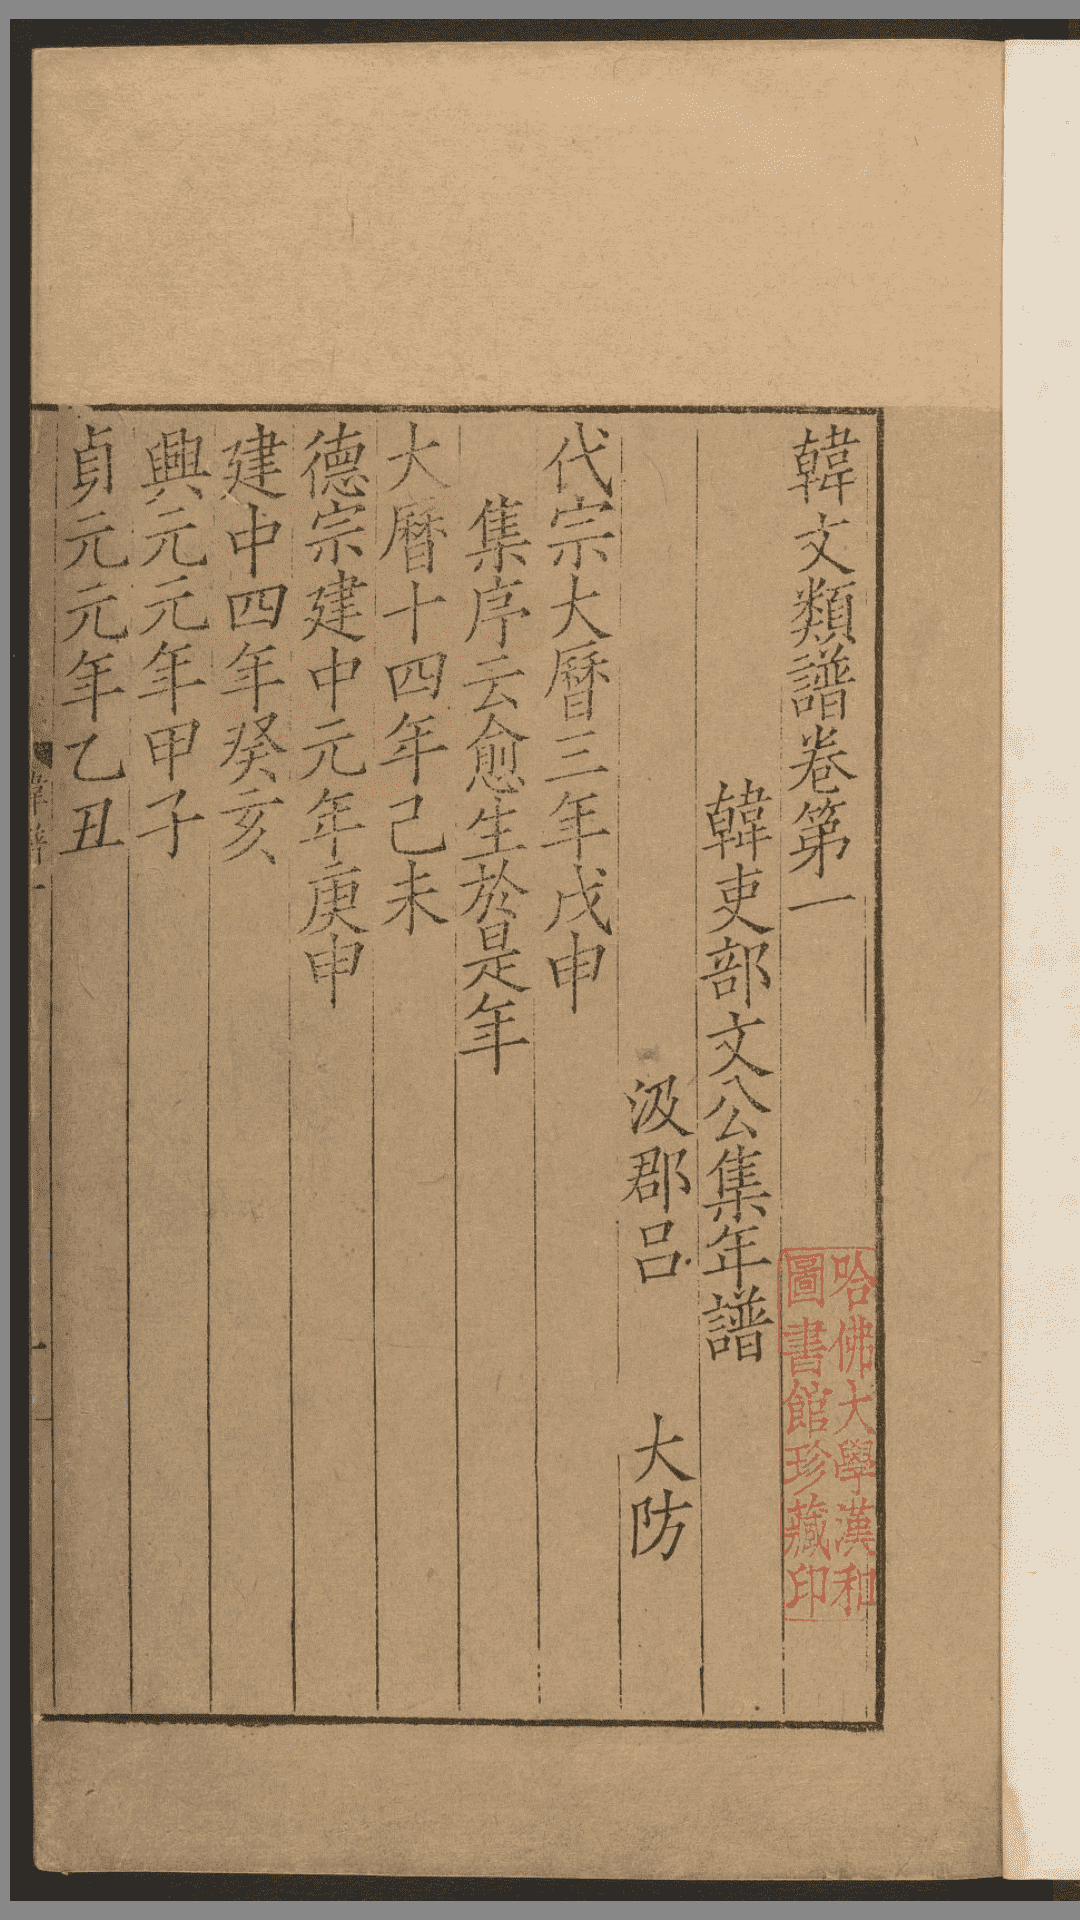 韓文類譜卷第一
韓吏部文公集年譜
汲郡呂　大防
代宗大曆三年戊申
集序云愈生於是年
大曆十四年己未
德宗建中元年庚申
建中四年癸亥
興元元年甲子
貞元元年乙丑
哈佛大學漢和
圖書館珍藏印